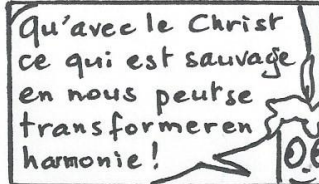 Qu'avec le Christ
ce qui est sauvage
en nous peut se
transformer en
harmonie !